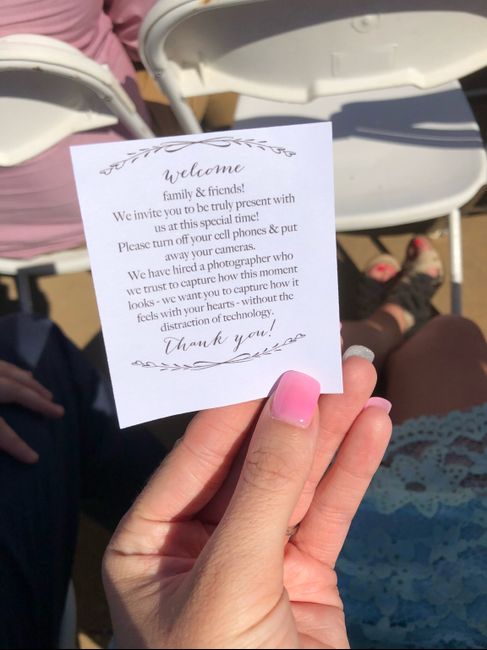 welcome
family & friends!
We invite you to be truly present with
us at this special time!
Please turn off your cell phones & put
away your cameras.
We have hired a photographer who
we trust to capture how this moment
looks - we want you to capture how it
feels with your hearts - without the
distraction of technology.
Thank you!